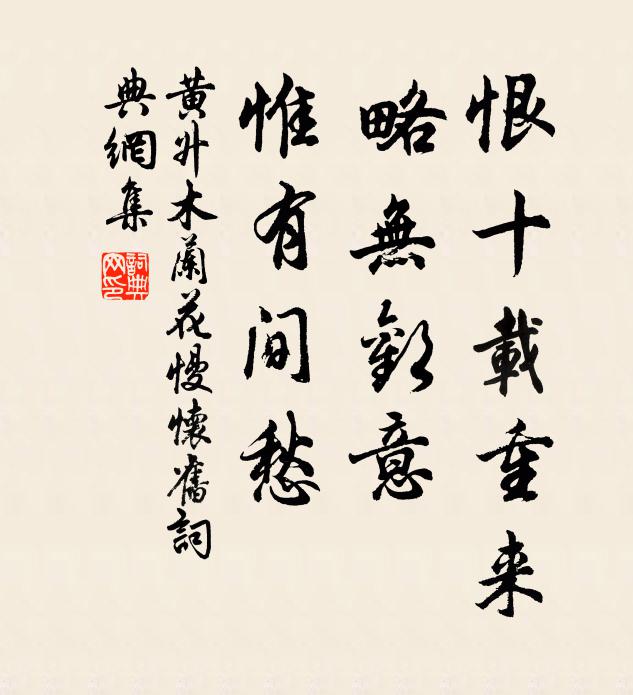 恨十載重来
略無歡意
惟有間愁
黄升木蘭花慢懷舊詞
典網集
詞典網印